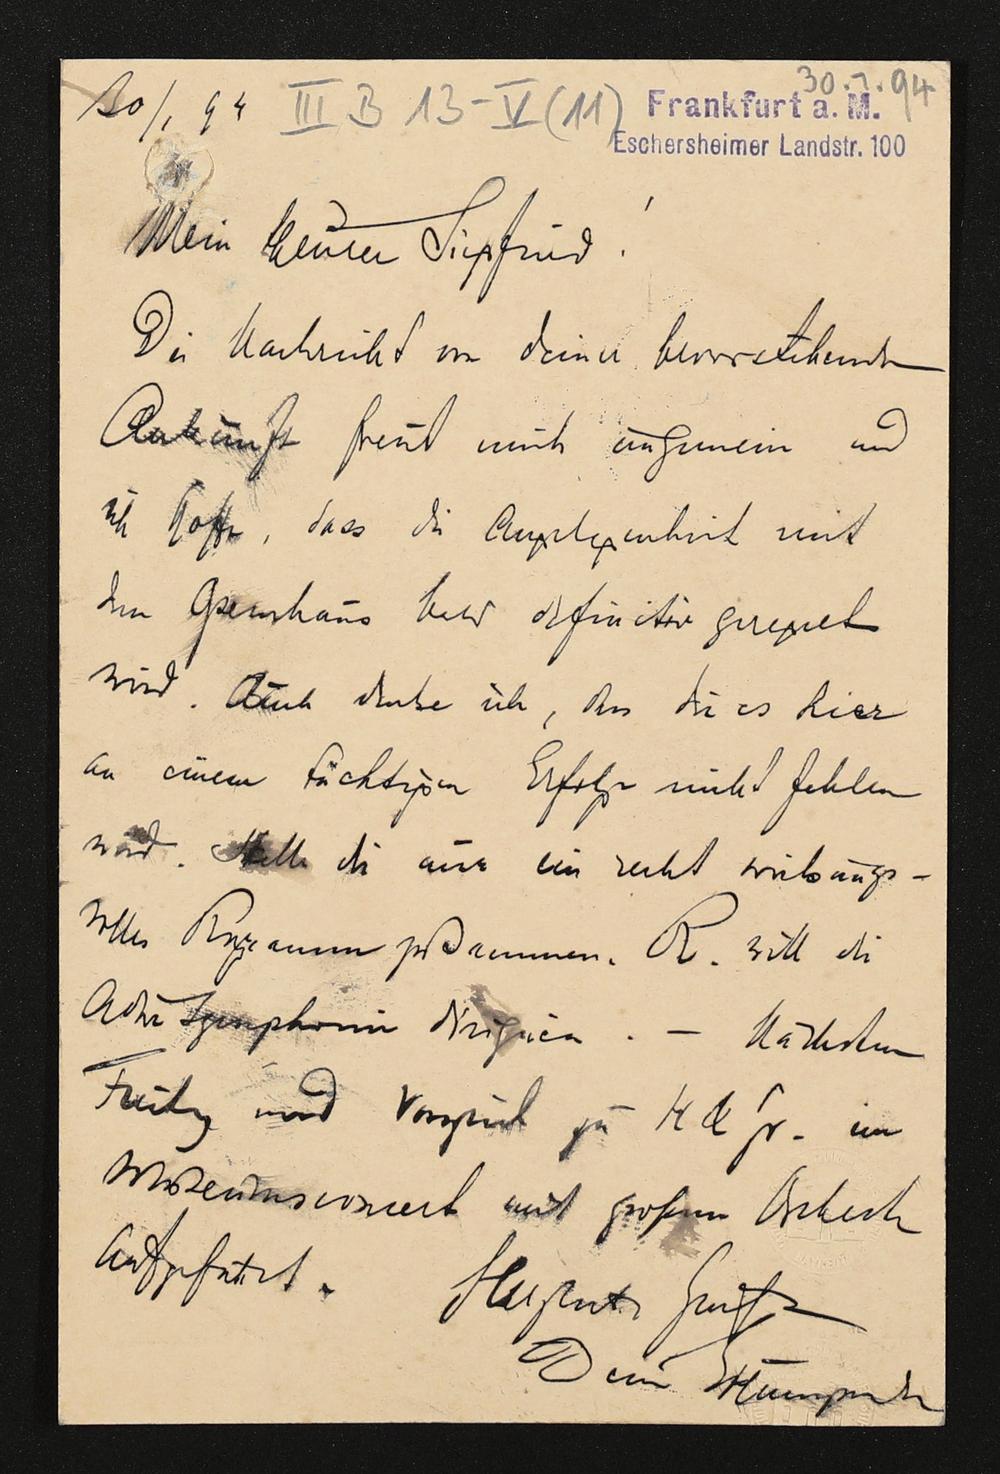 30/1 94 III B 13-V(11) 30.1.94
Frankfurt a. M.
Eschersheimer Landstr. 100
Mein theurer Siegfried!
Die Nachricht von deiner bevorstehenden
Ankunft freut mich ungemein und
ich hoffe, dass die Angelegenheit mit
dem Opernhaus bald definitiv geregelt
wird. Auch denke ich, dass dir es hier
an einem tüchtigen Erfolge nicht fehlen
wird. Stelle dir nur ein recht wirkungs-
volles Programm zusammen. R. will die
Adur Symphonie dirigiren. — Nächsten
Freitag wird Vorspiel zu H & Gr. im
Museumsconcert mit großem Orchester
aufgeführt. Herzlichste Grüße
Dein Humperdinck